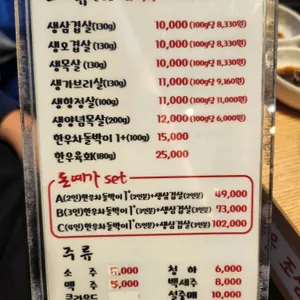 생삼겹살(130g) 10,000 (100g당 8,330원)
생오겹살(130g) 10,000 (100g당 8,330원)
생목살(130g) 10,000 (100g당 8,330원)
생가브리살(130g) 11,000 (100g당 9,160원)
생항정살(100g) 11,000 (100g당 11,000원)
생양념목살(200g) 12,000 (100g당 6,000원)
한우차돌박이 1+(100g) 15,000
한우육회(180g) 25,000
돌예가 set
A(2인)한우차돌박이1+(2인분)+생삼겹살(2인분) 49,000
B(3인)한우차돌박이1+(3인분)+생삼겹살(3인분) 73,000
C(4인)한우차돌박이1+ 102,000
주류
소주 5,000 청하 6,000
맥주 5,000 백세주 8,000
설중매 10,000